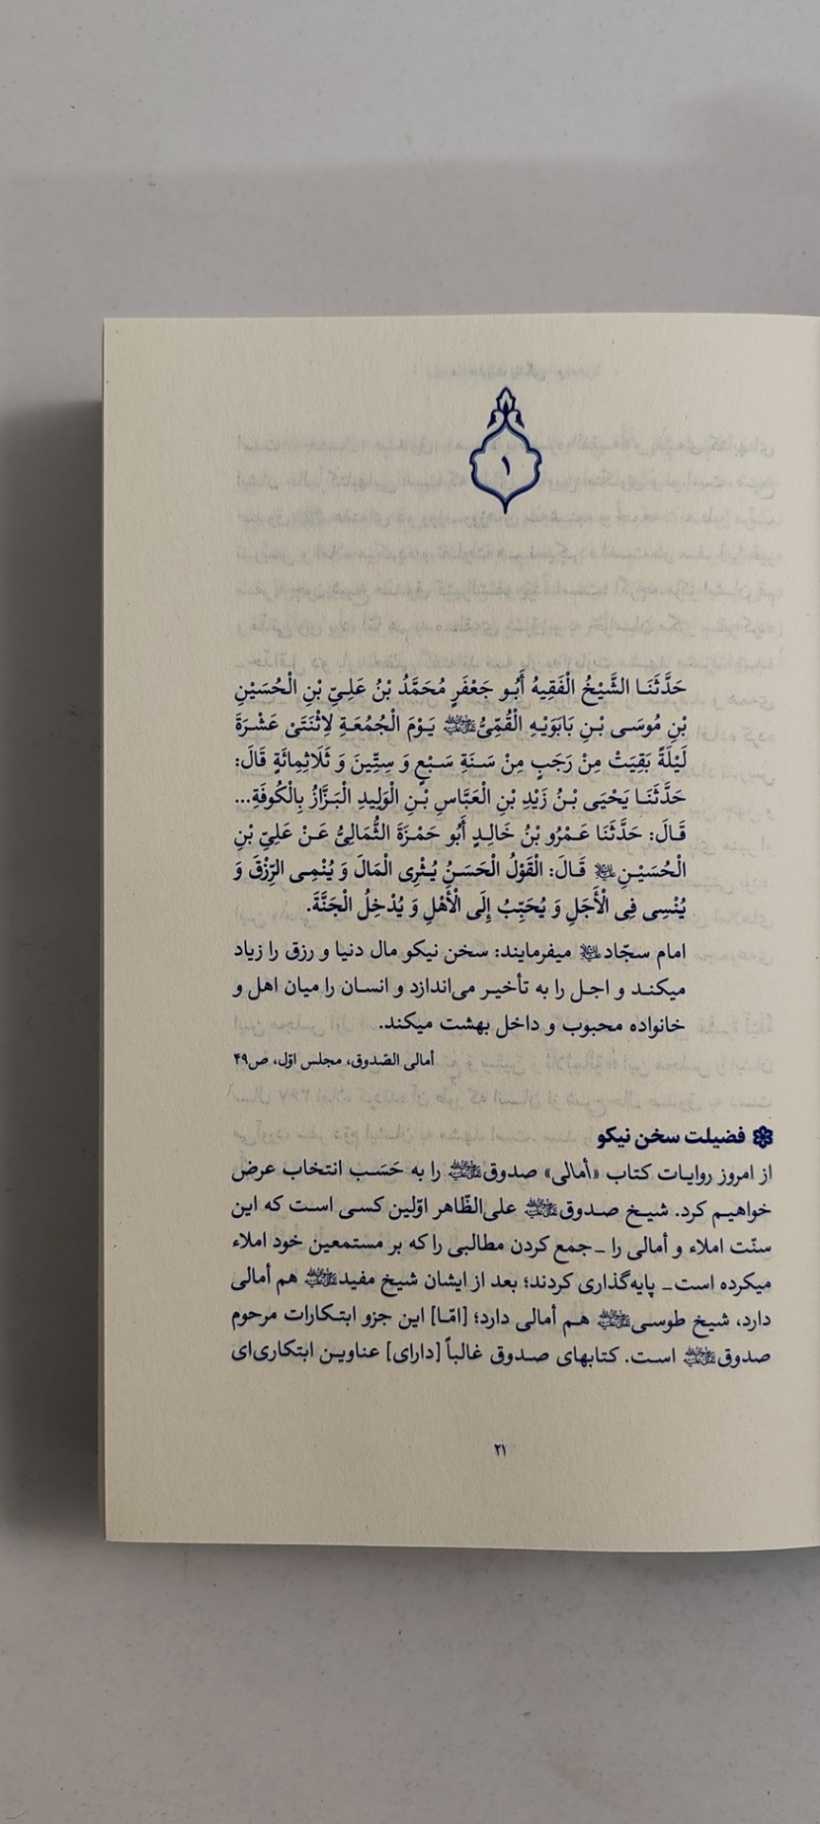 ۱
حَدَّثَنَا الشَّيْخُ الْفَقِيهُ أَبُو جَعْفَرٍ مُحَمَّدُ بْنُ عَلِيِّ بْنِ الْحُسَيْنِ
بْنِ مُوسَى بْنِ بَابَوَيْهِ الْقُمِّيُّ يَوْمَ الْجُمُعَةِ لِاثْنَتَيْ عَشْرَةَ
لَيْلَةً بَقِيَتْ مِنْ رَجَبٍ مِنْ سَنَةِ سَبْعٍ وَ سِتِّينَ وَ ثَلَاثِمِائَةٍ قَالَ:
حَدَّثَنَا يَحْيَى بْنُ زَيْدِ بْنِ الْعَبَّاسِ بْنِ الْوَلِيدِ الْبَزَّازُ بِالْكُوفَةِ...
قَالَ: حَدَّثَنَا عَمْرُو بْنُ خَالِدٍ أَبُو حَمْزَةَ الثُّمَالِيُّ عَنْ عَلِيِّ بْنِ
الْحُسَيْنِ قَالَ: الْقَوْلُ الْحَسَنُ يُثْرِى الْمَالَ وَ يُنْمِى الرِّزْقَ وَ
يُنْسِى فِى الْأَجَلِ وَ يُحَبِّبُ إِلَى الْأَهْلِ وَ يُدْخِلُ الْجَنَّةَ.
امام سجّاد میفرمایند: سخن نیکو مال دنیا و رزق را زیاد
میکند و اجل را به تأخیر می‌اندازد و انسان را میان اهل و
خانواده محبوب و داخل بهشت میکند.
أمالی الصّدوق، مجلس اوّل، ص۴۹
فضیلت سخن نیکو
از امروز روایات کتاب «أمالی» صدوق را به حَسَب انتخاب عرض
خواهیم کرد. شیخ صدوق علی‌الظّاهر اوّلین کسی است که این
سنّت املاء و أمالی را ـ جمع کردن مطالبی را که بر مستمعین خود املاء
میکرده است ـ پایه‌گذاری کردند؛ بعد از ایشان شیخ مفید هم أمالی
دارد، شیخ طوسی هم أمالی دارد؛ [امّا] این جزو ابتکارات مرحوم
صدوق است. کتابهای صدوق غالباً [دارای] عناوین ابتکاری‌ای
۲۱